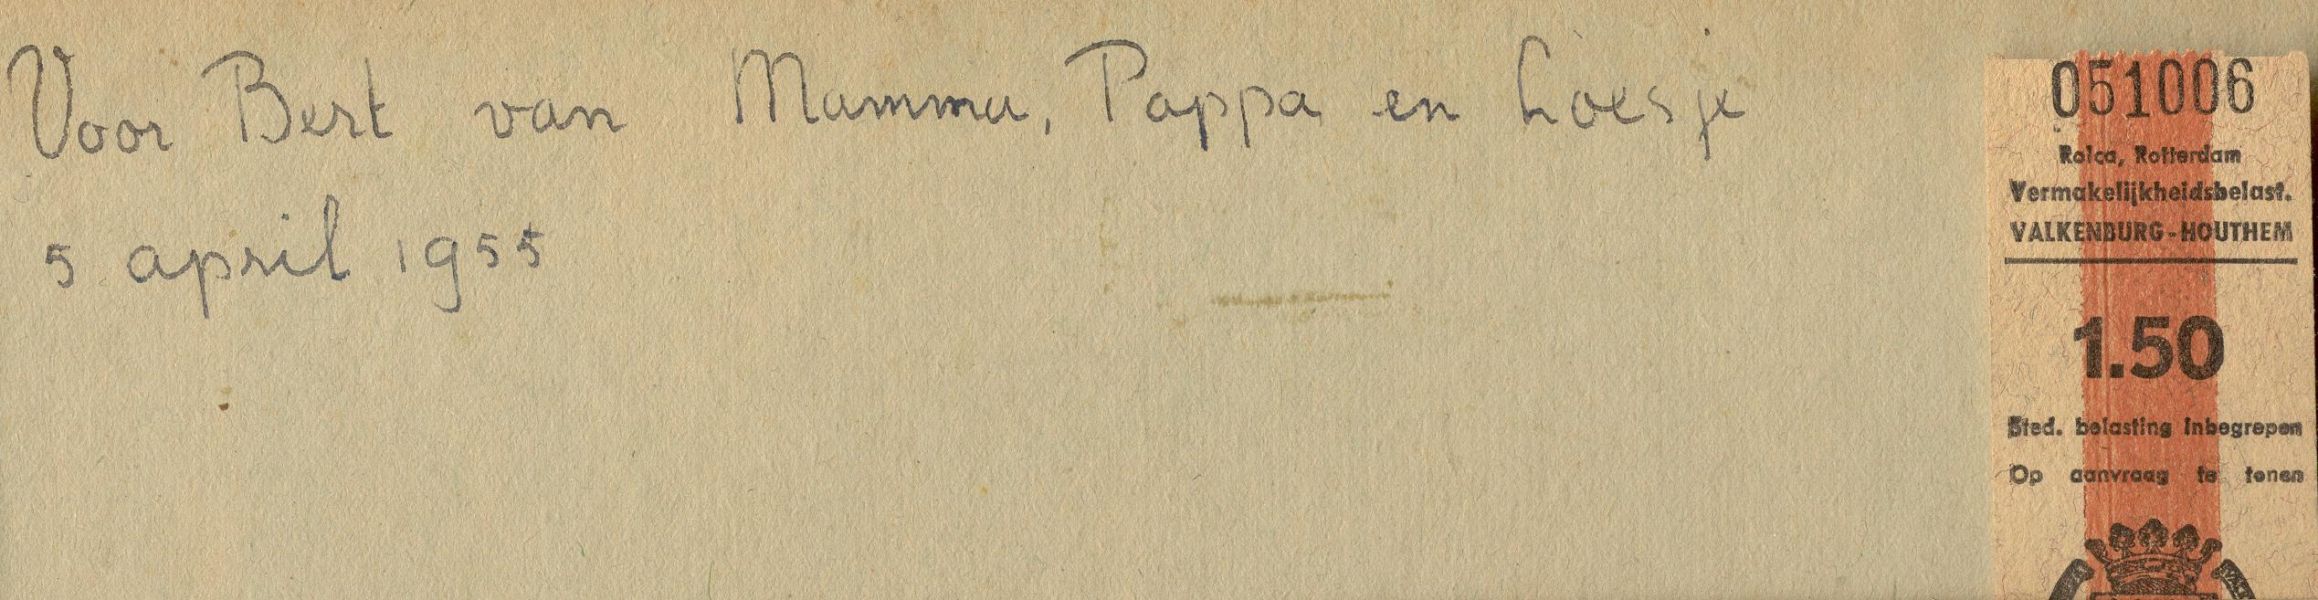 Voor Bert van Mamma, Pappa en Loesje
5 april 1955
051006
Rolca, Rotterdam
Vermakelijkheidsbelast.
VALKENBURG-HOUTHEM
1.50
Sted. belasting inbegrepen
Op aanvraag te tonen